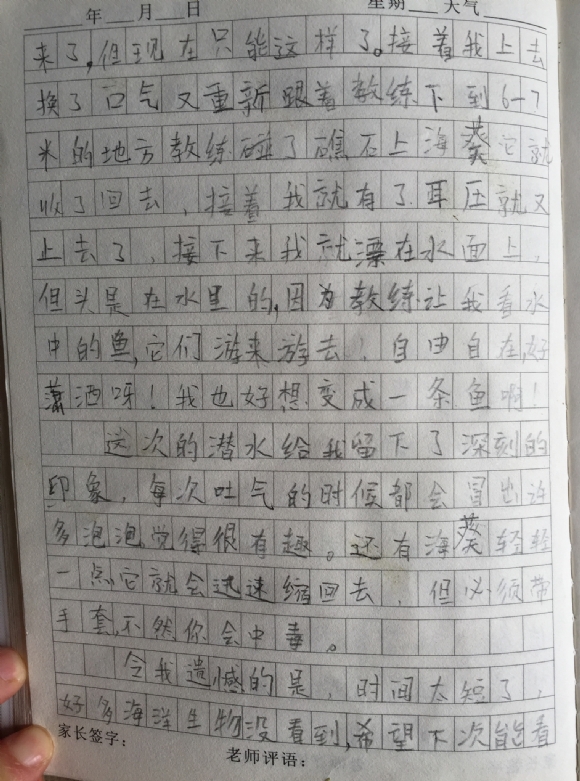 年 月 日 星期 天气
来了,但现在只能这样了。接着我上去
换了口气又重新跟着教练下到6-7
米的地方教练碰了礁石上海葵它就
收了回去,接着我就有了耳压就又
上去了,接下来我就漂在水面上,
但头是在水里的,因为教练让我看水
中的鱼,它们游来游去!自由自在,好
潇洒呀!我也好想变成一条鱼啊!
这次的潜水给我留下了深刻的
印象,每次吐气的时候都会冒出许
多泡泡,觉得很有趣。还有海葵轻轻
一点它就会迅速缩回去,但必须带
手套,不然你会中毒。
令我遗憾的是,时间太短了,
好多海洋生物没看到,希望下次能看
家长签字:
老师评语: